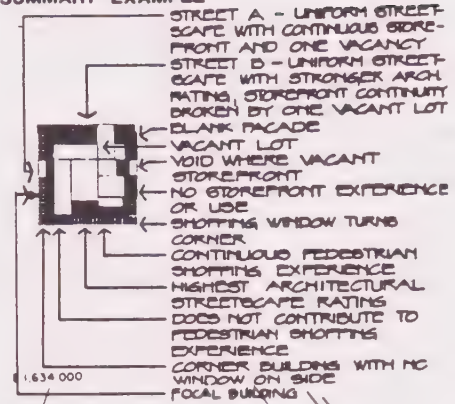 SUMMARY EXAMPLE
STREET A - UNIFORM STREET-
SCAPE WITH CONTINUOUS STORE-
FRONT AND ONE VACANCY
STREET B - UNIFORM STREET-
SCAPE WITH STRONGER ARCH.
RATING, STOREFRONT CONTINUITY
BROKEN BY ONE VACANT LOT
BLANK FACADE
VACANT LOT
VOID WHERE VACANT
STOREFRONT
NO STOREFRONT EXPERIENCE
OR USE
SHOPPING WINDOW TURNS
CORNER
CONTINUOUS PEDESTRIAN
SHOPPING EXPERIENCE
HIGHEST ARCHITECTURAL
STREETSCAPE RATING
DOES NOT CONTRIBUTE TO
PEDESTRIAN SHOPPING
EXPERIENCE
CORNER BUILDING WITH NO
WINDOW ON SIDE
FOCAL BUILDING
1,634 000